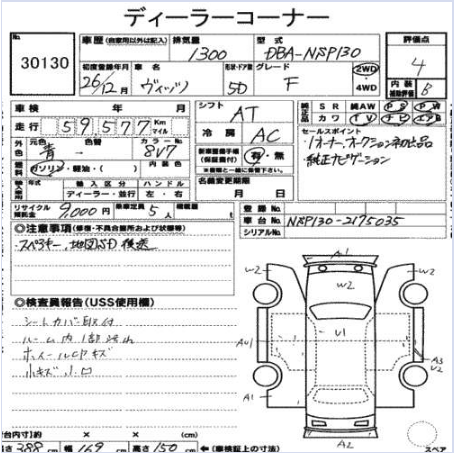 ディーラーコーナー
No.
30130
車歴 (自家用以外は記入)
排気量
1300
型式
DBA-NSP130
評価点
4
内装
補助評価
B
初度登録年月
26/12月
車名
ヴィッツ
形状・ドア数
5D
グレード
F
2WD
・
4WD
車検 年 月
走行 59,577 Km
マイル
シフト
AT
冷房
AC
純正 SR 純AW PS PW
カワ TV ナビ
外装 元色 青 色替 カラーNo 8V7
内装色
燃料 ガソリン・軽油・( )
セールスポイント
1オーナー、オークション初出品
純正ナビゲーション
新車整備手帳
(保証書付)
有・無
名義変更期限
月 日
輸入区分 ハンドル
年式 ディーラー・並行 左・右
リサイクル
預託金
9,000円
乗車定員 5人
積載量
登録No.
車台No. NSP130-2175035
シリアルNo.
◎注意事項(修復・不具合箇所および状態等)
スペアキー、地図SD後送
◎検査員報告(USS使用欄)
シートカバー取付
ルーム内1部汚れ
ホイールCPキズ
小キズ小凹
A1
W2
W2
W2
U1
A3
U2
A1
A2
スペア
荷台内寸(約 × ×
長さ 388 cm 幅 169 cm 高さ 150 cm ←(車検証上の寸法)